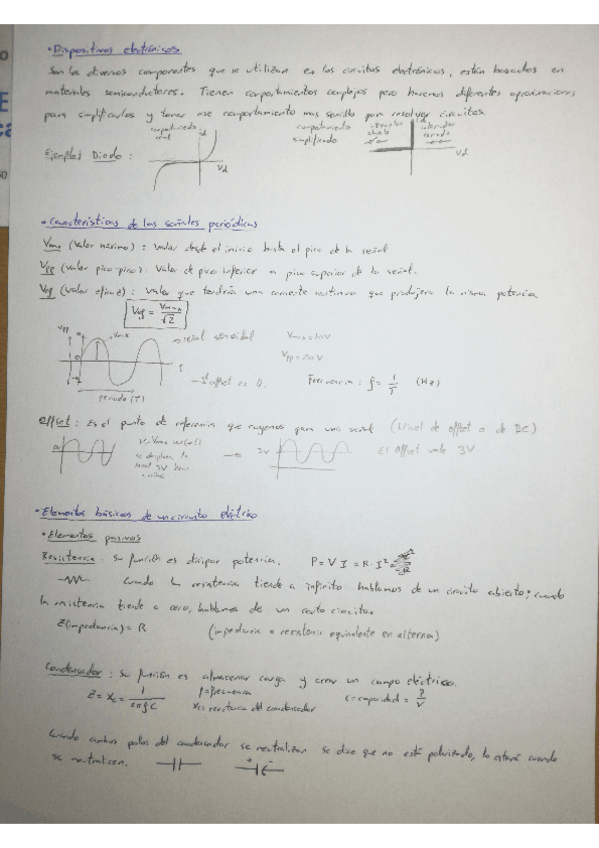 • Dispositivos electrónicos
Son los diversos componentes que se utilizan en los circuitos electrónicos, están basados en
materiales semiconductores. Tienen comportamientos complejos pero haremos diferentes aproximaciones
para simplificarlos y tener ese comportamiento mas sencillo para resolver circuitos.
Ejemplo: Diodo :
comportamiento real
Id
Vd
comportamiento simplificado
interruptor abierto
Id
interruptor cerrado
Vd
• Características de las señales periódicas
Vmax (Valor máximo) : Valor desde el inicio hasta el pico de la señal
Vpp (Valor pico-pico) : Valor de pico inferior a pico superior de la señal.
Vef (Valor eficaz) : Valor que tendría una corriente continua que produjera la misma potencia.
Vef = Vmax/√2
Vpp
Vmax
→ señal senoidal
Vmax = 10V
Vpp = 20V
t
periodo (T)
→ el offset es 0.
Frecuencia : f = 1/T (Hz)
Offset : Es el punto de referencia que cogemos para una señal (Nivel de offset o de DC)
se desplaza la
señal 3V hacia
arriba
3V
El offset vale 3V
• Elementos básicos de un circuito eléctrico
• Elementos pasivos
Resistencia : Su función es disipar potencia. P = V·I = R·I²
Cuando la resistencia tiende a infinito hablamos de un circuito abierto; cuando
la resistencia tiende a cero, hablamos de un corto circuito.
Z(impedancia) = R (impedancia = resistencia equivalente en alterna)
Condensador : Su función es almacenar carga y crear un campo eléctrico.
Z = Xc = 1/2πfC
f = frecuencia
Xc = reactancia del condensador
C = capacidad = q/V
Cuando ambos polos del condensador se neutralizan se dice que no está polarizado, lo estará cuando
se neutralicen.
+ −